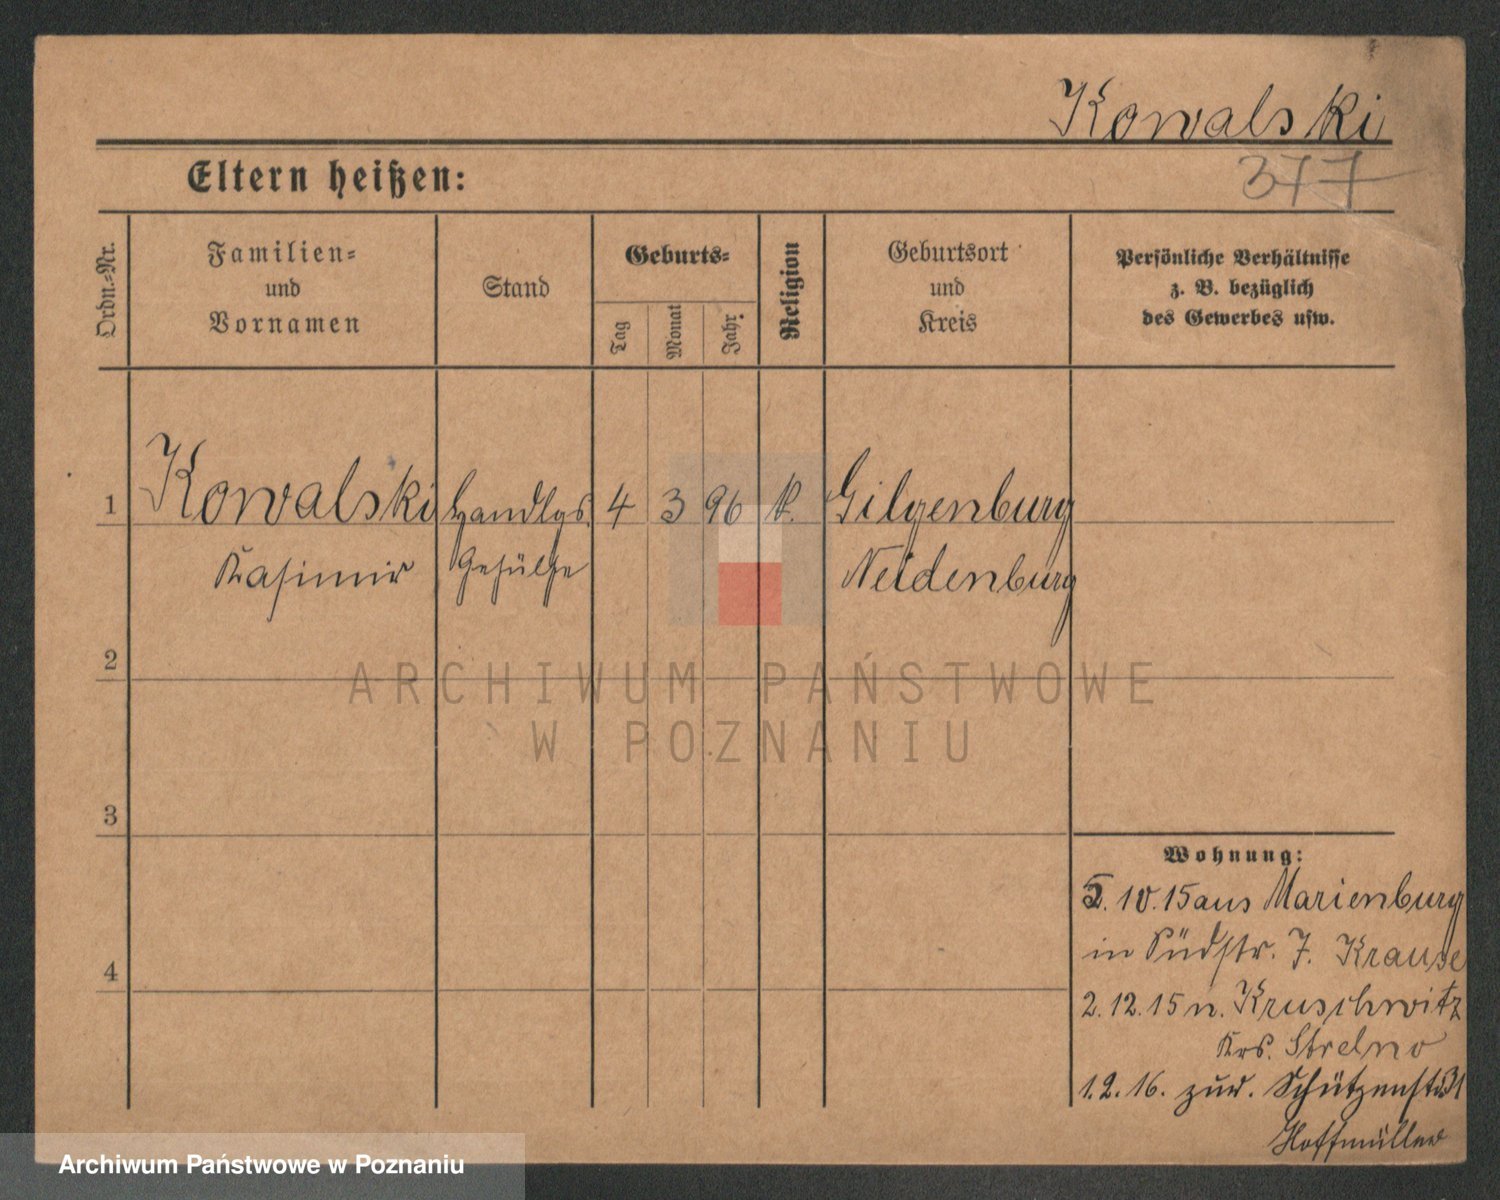 Kowalski
377
Eltern heißen:
Ordn.-Nr.
Familien-
und
Vornamen
Stand
Geburts-
Tag
Monat
Jahr.
Religion
Geburtsort
und
Kreis
Persönliche Verhältnisse
z. B. bezüglich
des Gewerbes usw.
1
Kowalski Handlgs. 4 3 96 k. Gilgenburg
Kasimir Gehülfe Neidenburg
2
ARCHIWUM PAŃSTWOWE
W POZNANIU
3
Wohnung:
5. 10. 15 aus Marienburg
in Südstr. 7. Krause
4
2. 12. 15 n. Kruschwitz
Krs. Strelno
1. 2. 16. zur. Schützenstr 31
Hoffmüller
Archiwum Państwowe w Poznaniu